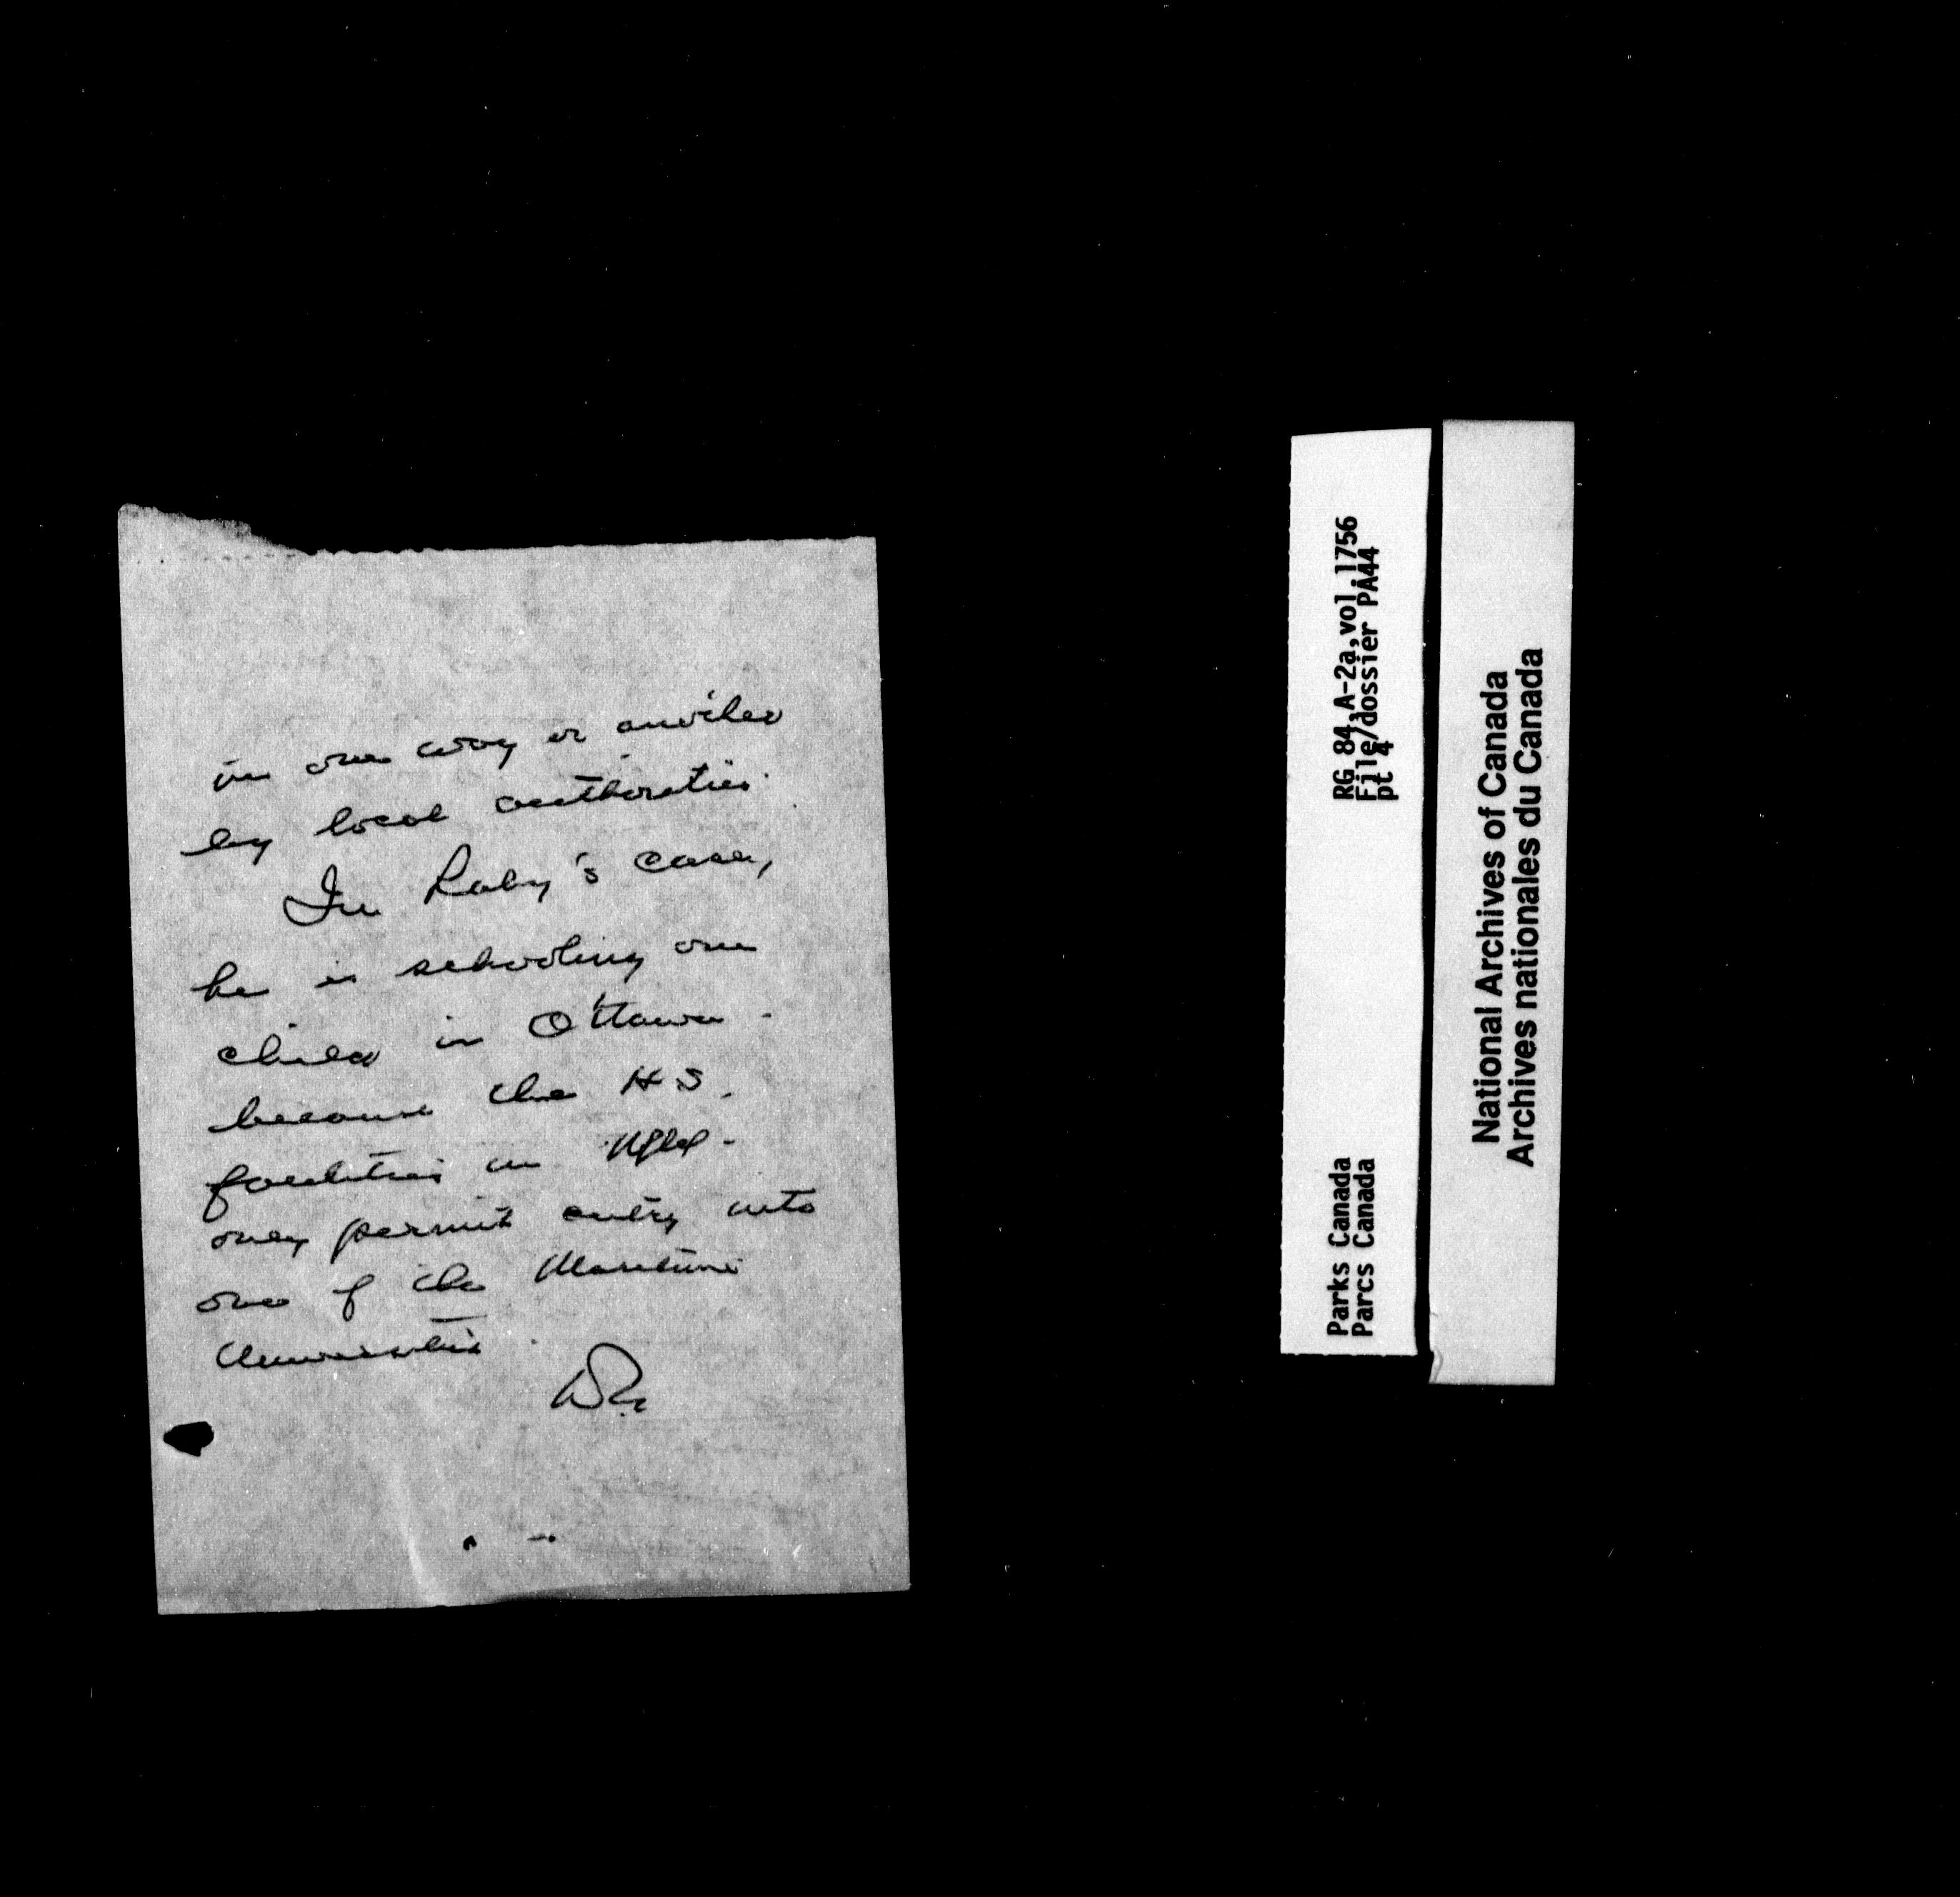 in one way or another
by local authorities.
In Raby's case,
he is schooling one
child in Ottawa
because the H S.
facilities in Nfld.
only permit entry into
one of the Maritime
Universities.
RG 84,A-2a,vol.1756
File/dossier PA44
pt 4
Parks Canada
Parcs Canada
National Archives of Canada
Archives nationales du Canada